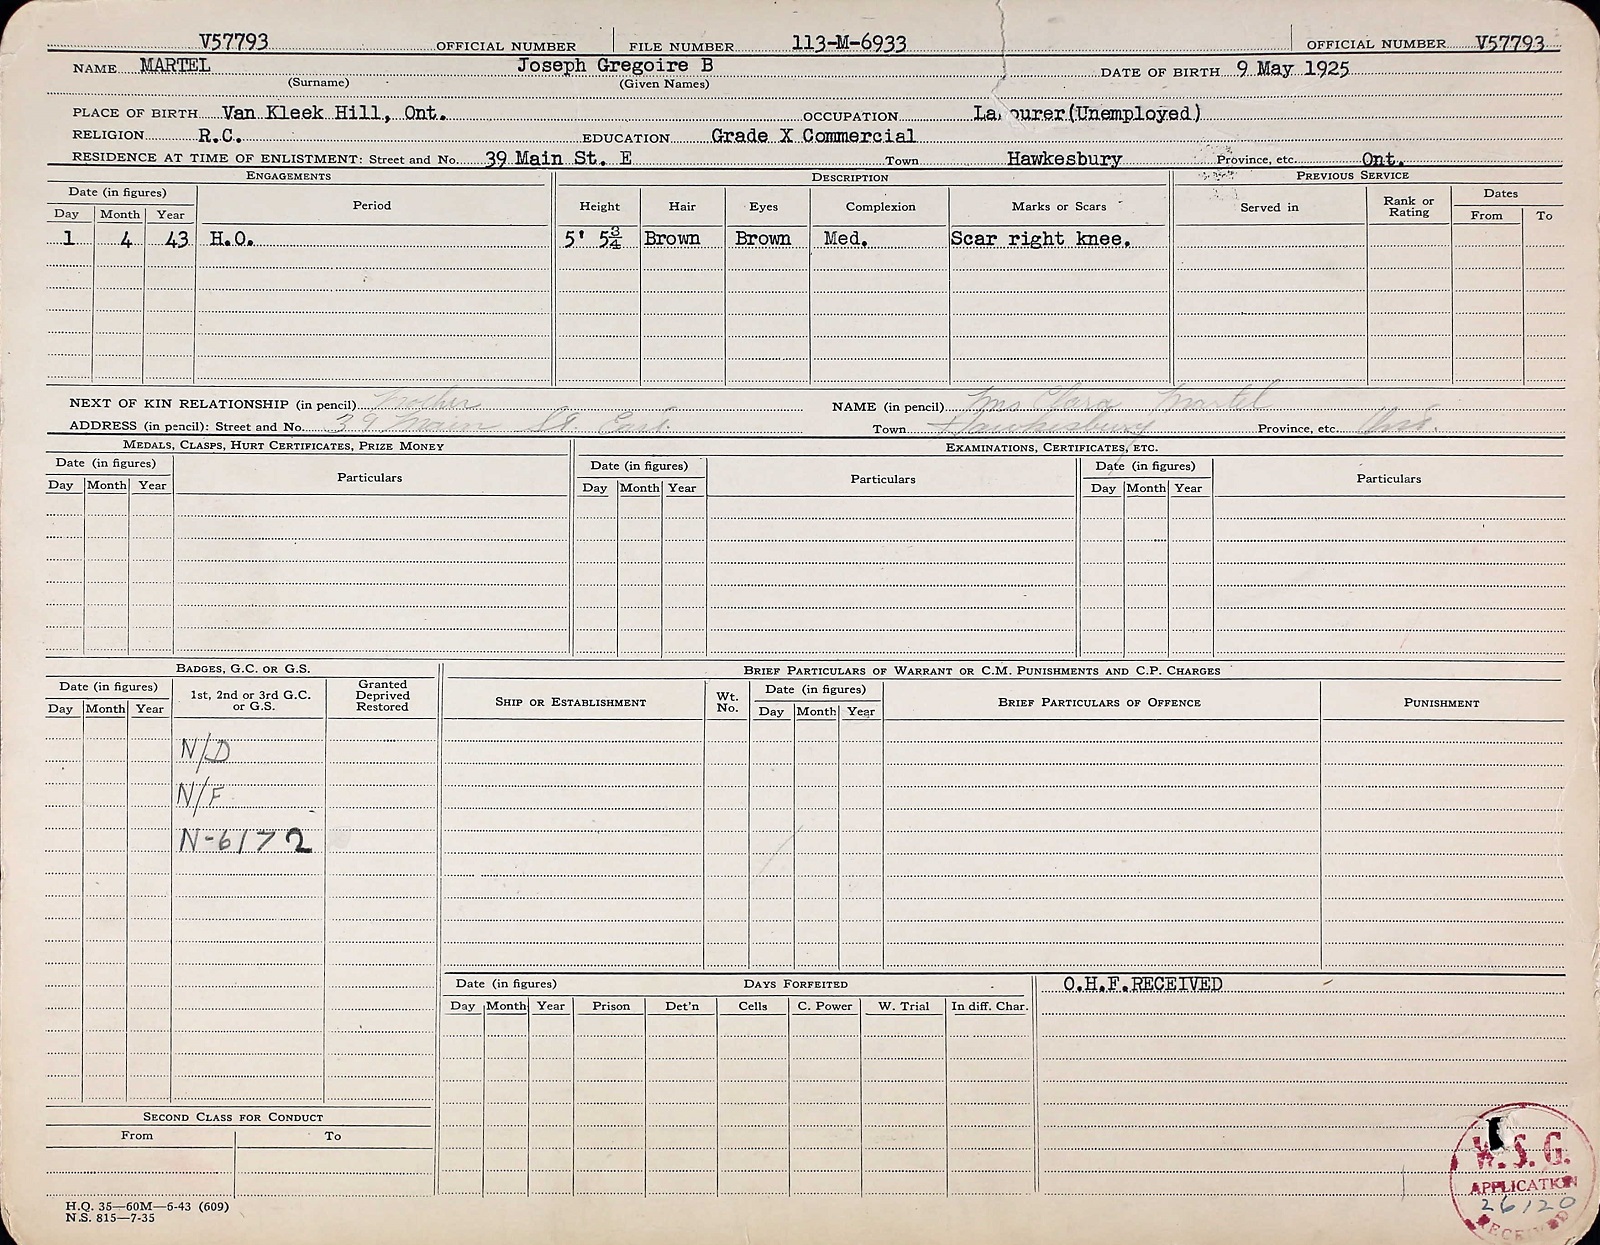 V57793 OFFICIAL NUMBER FILE NUMBER 113-M-6933 OFFICIAL NUMBER V57793
NAME MARTEL Joseph Gregoire B DATE OF BIRTH 9 May 1925
(Surname) (Given Names)
PLACE OF BIRTH Van Kleek Hill, Ont. OCCUPATION La ourer(Unemployed)
RELIGION R.C. EDUCATION Grade X Commercial
RESIDENCE AT TIME OF ENLISTMENT: Street and No. 39 Main St. E Town Hawkesbury Province, etc. Ont.
ENGAGEMENTS DESCRIPTION PREVIOUS SERVICE
Date (in figures) Period Height Hair Eyes Complexion Marks or Scars Served in Rank or Rating Dates
Day Month Year From To
1 4 43 H.O. 5' 5¾ Brown Brown Med. Scar right knee.
NEXT OF KIN RELATIONSHIP (in pencil) Mother NAME (in pencil) Mrs Clara Martel
ADDRESS (in pencil): Street and No. 39 Main St. East Town Hawkesbury Province, etc. Ont.
MEDALS, CLASPS, HURT CERTIFICATES, PRIZE MONEY EXAMINATIONS, CERTIFICATES, ETC.
Date (in figures) Particulars Date (in figures) Particulars Date (in figures) Particulars
Day Month Year Day Month Year Day Month Year
BADGES, G.C. OR G.S. BRIEF PARTICULARS OF WARRANT OR C.M. PUNISHMENTS AND C.P. CHARGES
Date (in figures) 1st, 2nd or 3rd G.C. or G.S. Granted Deprived Restored SHIP OR ESTABLISHMENT Wt. No. Date (in figures) BRIEF PARTICULARS OF OFFENCE PUNISHMENT
Day Month Year Day Month Year
N/D
N/F
N-6172
Date (in figures) DAYS FORFEITED O.H.F. RECEIVED
Day Month Year Prison Det'n Cells C. Power W. Trial In diff. Char.
SECOND CLASS FOR CONDUCT
From To
W.S.G.
APPLICATION
26120
RECEIVED
H.Q. 35—60M—6-43 (609)
N.S. 815—7-35